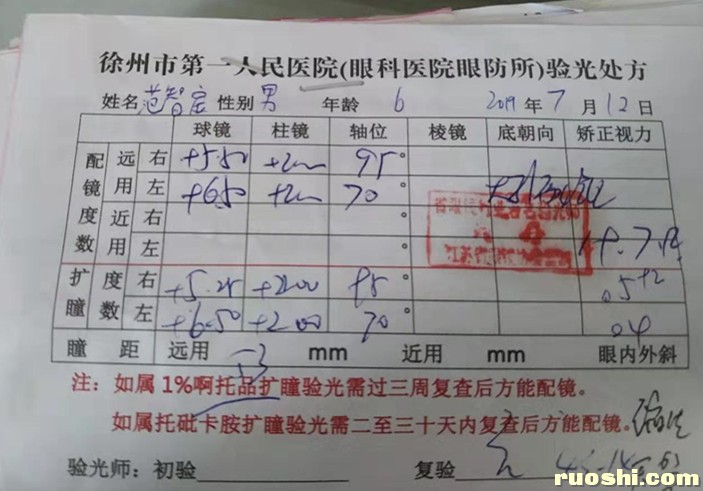 徐州市第一人民医院(眼科医院眼防所)验光处方
姓名 范智宸 性别 男 年龄 6 2019 年 7 月 12 日
球镜 柱镜 轴位 棱镜 底朝向 矫正视力
配镜度数 远用 右 +5.50 +2.00 95°
左 +6.50 +2.00 70°
近用 右
左
扩瞳 度数 右 +5.25 +2.00 95° 0.5+2
左 +6.50 +2.00 70° 0.4
瞳 距 远用 53 mm 近用 mm 眼内外斜
注：如属1%啊托品扩瞳验光需过三周复查后方能配镜。
如属托砒卡胺扩瞳验光需二至三十天内复查后方能配镜。
验光师：初验 复验
ruoshi.com